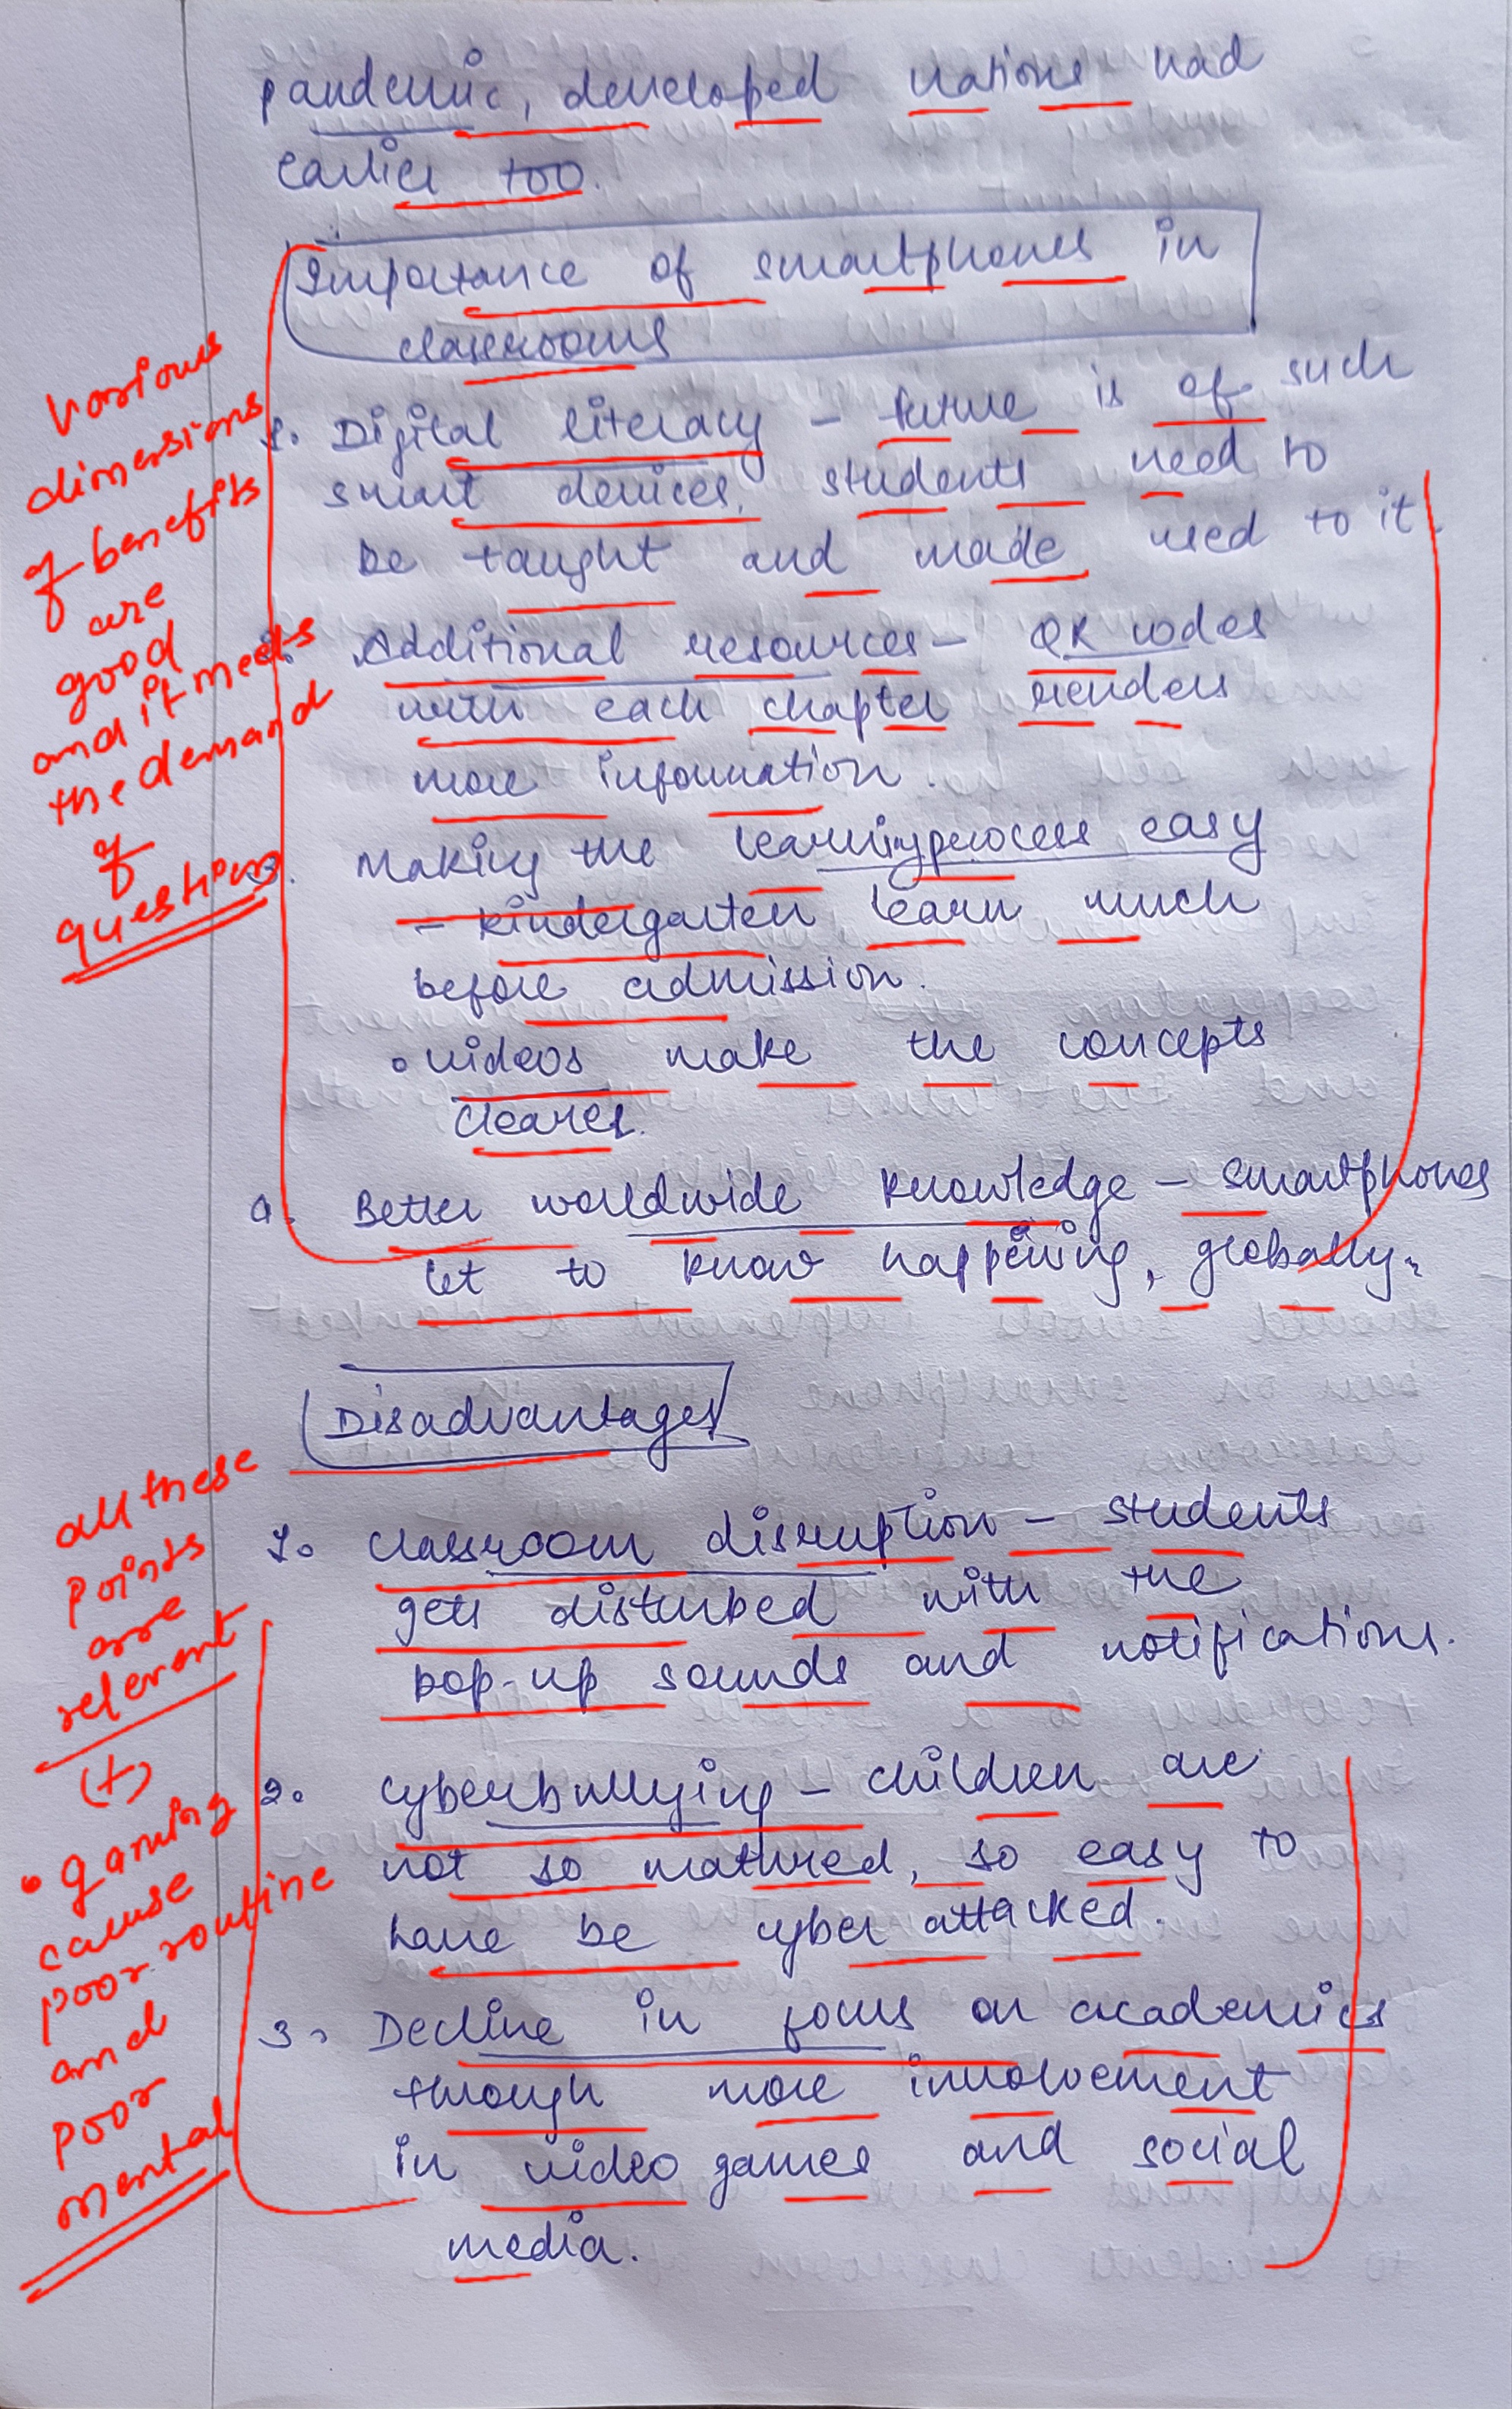 pandemic, developed nations had
earlier too.
Importance of smartphones in
classrooms
1. Digital literacy – future is of such
smart devices, students need to
be taught and made used to it.
2. Additional resources – QR codes
with each chapter renders
more information.
3. Making the learning process easy
– kindergarten learn much
before admission.
• videos make the concepts
clearer.
4. Better worldwide knowledge – smartphones
let to know happening, globally.
Disadvantages
1. Classroom disruption – students
gets disturbed with the
pop-up sounds and notifications.
2. Cyberbullying – children are
not so matured, so easy to
have be cyber attacked.
3. Decline in focus on academics
through more involvement
in video games and social
media.
Various
dimensions
of benefits
are
good
and it meets
the demand
of
questions
all these
points
are
relevent
(+)
• gaming
cause
poor routine
and
poor
mental